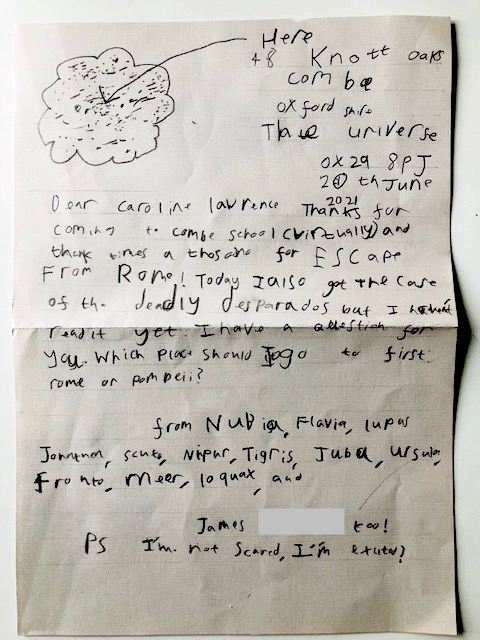 Here
48 Knott oaks
combe
oxford shire
The universe
ox29 8pJ
20 th June
2021
Dear caroline lawrence Thanks for
coming to combe school (virtually) and
thank times a thosand for Escape
From Rome! Today I also got the case
of the deadly desparados but I havent
read it yet. I have a question for
you. Which place should I go to first.
rome or pompeii?
from Nubia, Flavia, lupus
Jonathan, scuto, Nipur, Tigris, Juba, Ursula,
Fronto, Meer, loquax, and
James too!
PS I'm not scared, I'm exited?